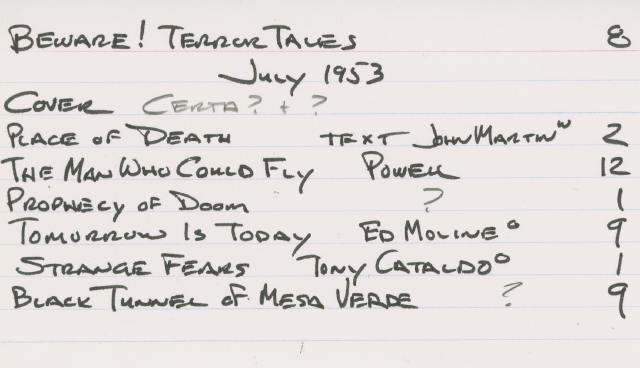 BEWARE! TERROR TALES 8
JULY 1953
COVER CERTA? + ?
PLACE OF DEATH TEXT JOHN MARTIN W 2
THE MAN WHO COULD FLY POWELL 12
PROPHECY OF DOOM ? 1
TOMORROW IS TODAY ED MOLINE O 9
STRANGE FEARS TONY CATALDO O 1
BLACK TUNNEL OF MESA VERDE ? 9